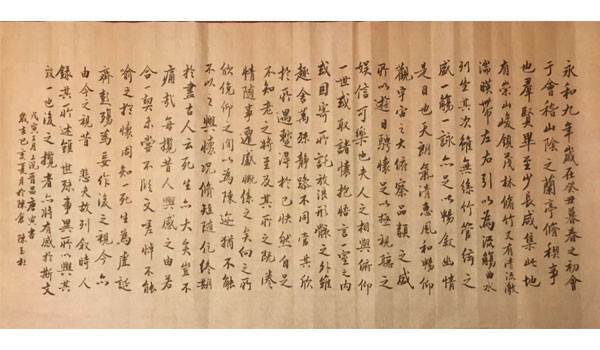 永和九年歲在癸丑暮春之初會
于會稽山陰之蘭亭脩禊事
也群賢畢至少長咸集此地
有崇山峻領茂林脩竹又有清流激
湍暎帶左右引以為流觴曲水
列坐其次雖無絲竹管絃之
盛一觴一詠亦足以暢敘幽情
是日也天朗氣清惠風和暢仰
觀宇宙之大俯察品類之盛
所以遊目騁懷足以極視聽之
娛信可樂也夫人之相與俯仰
一世或取諸懷抱悟言一室之內
或因寄所託放浪形骸之外雖
趣舍萬殊靜躁不同當其欣
於所遇暫得於己快然自足
不知老之將至及其所之既惓
情隨事遷感慨係之矣向之所
欣俛仰之間以為陳迹猶不能
不以之興懷況脩短隨化終期
於盡古人云死生亦大矣豈不
痛哉每攬昔人興感之由若
合一契未嘗不臨文嗟悼不能
喻之於懷固知一死生為虛誕
齊彭殤為妄作後之視今亦
由今之視昔 悲夫故列敘時人
錄其所述雖世殊事異所以興其
致一也後之攬者亦將有感於斯文
戊寅三月上浣晉昌唐寅書
己亥夏月於陳倉 陳玉